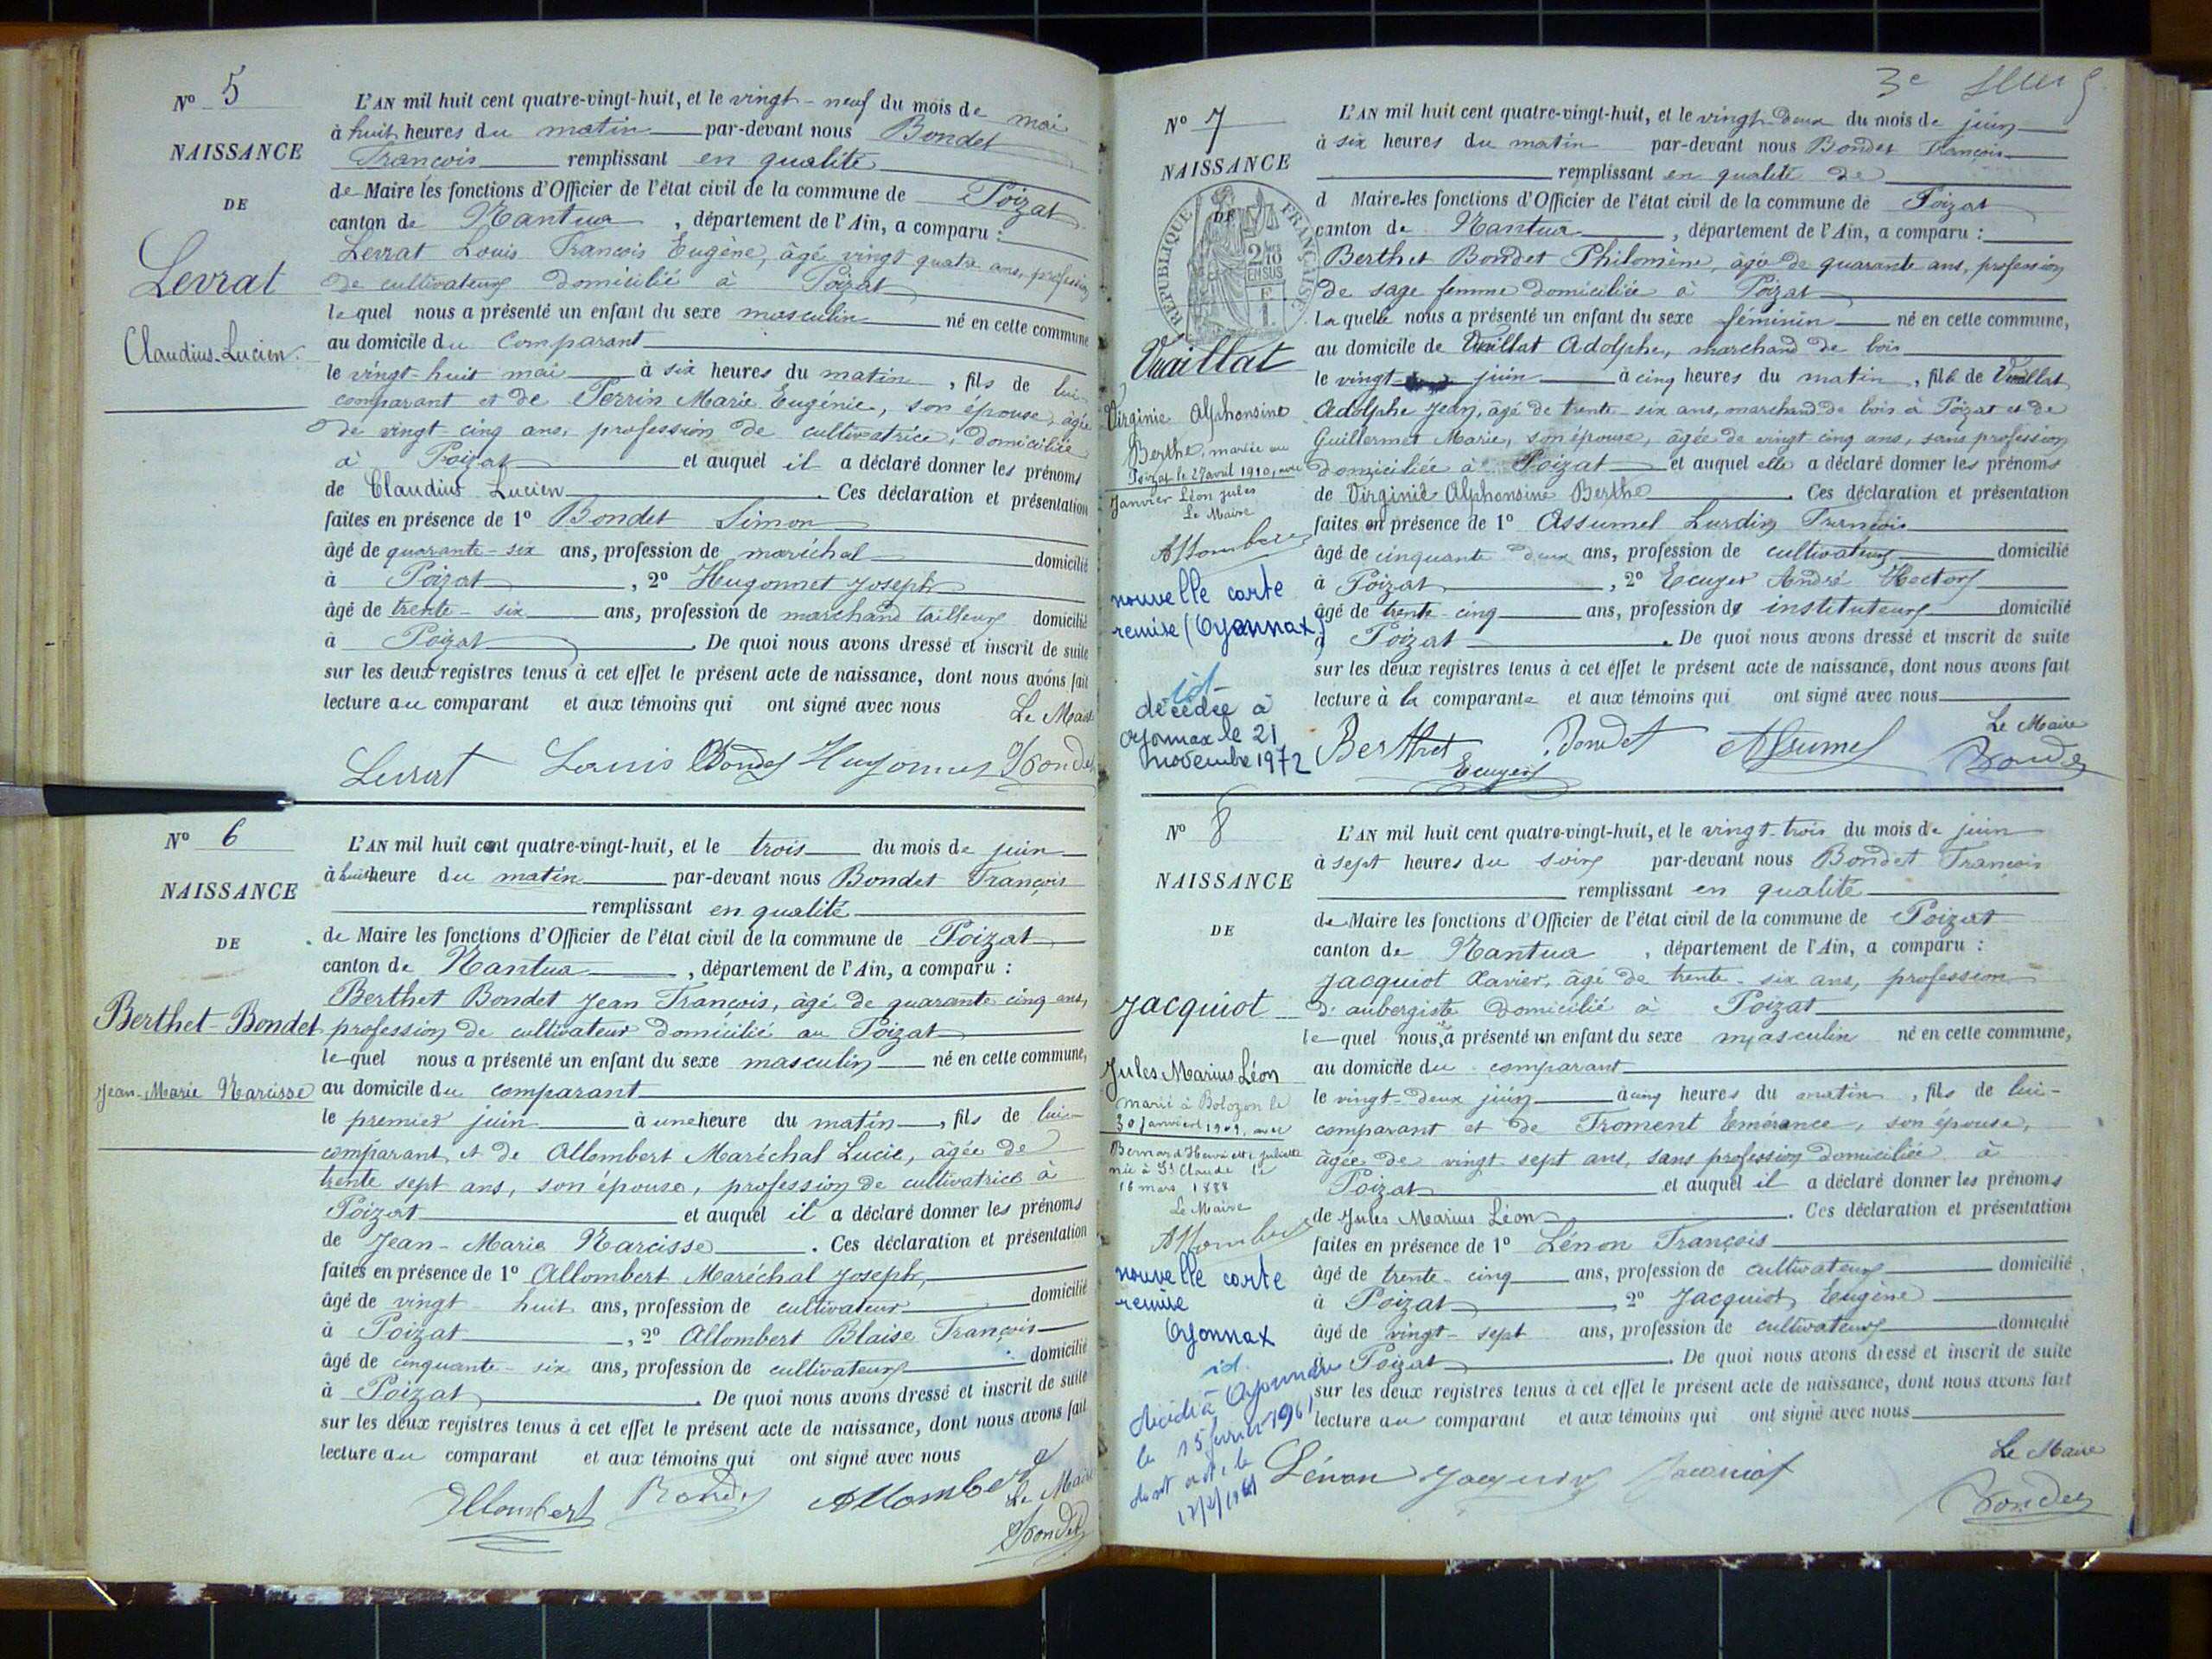 N° 5
NAISSANCE
DE
Levrat
Claudius-Lucien.
L'AN mil huit cent quatre-vingt-huit, et le vingt-neuf du mois de mai
à huit heures du matin par-devant nous Bondet
François remplissant en qualité
de Maire les fonctions d'Officier de l'état civil de la commune de Poizat
canton de Nantua, département de l'Ain, a comparu :
Levrat Louis François Eugène, âgé vingt quatre ans, profession
de cultivateur domicilié à Poizat
lequel nous a présenté un enfant du sexe masculin né en cette commune
au domicile du Comparant
le vingt-huit mai à six heures du matin, fils de lui-
comparant et de Perrin Marie Eugénie, son épouse, âgée
de vingt-cinq ans, profession de cultivatrice, domiciliée
à Poizat et auquel il a déclaré donner les prénoms
de Claudius Lucien. Ces déclaration et présentation
faites en présence de 1° Bondet Simon
âgé de quarante-six ans, profession de maréchal domicilié
à Poizat, 2° Hugonnet Joseph
âgé de trente-six ans, profession de marchand tailleur domicilié
à Poizat. De quoi nous avons dressé et inscrit de suite
sur les deux registres tenus à cet effet le présent acte de naissance, dont nous avons fait
lecture au comparant et aux témoins qui ont signé avec nous
Le Maire
Levrat Louis Bondet Hugonnet Bondet
N° 6
NAISSANCE
DE
Berthet-Bondet
Jean-Marie Narcisse
L'AN mil huit cent quatre-vingt-huit, et le trois du mois de juin
à huit heure du matin par-devant nous Bondet François
remplissant en qualité
de Maire les fonctions d'Officier de l'état civil de la commune de Poizat
canton de Nantua, département de l'Ain, a comparu :
Berthet Bondet Jean François, âgé de quarante cinq ans,
profession de cultivateur domicilié au Poizat
lequel nous a présenté un enfant du sexe masculin né en cette commune,
au domicile du comparant
le premier juin à une heure du matin, fils de lui-
comparant et de Allombert Maréchal Lucie, âgée de
trente sept ans, son épouse, profession de cultivatrice à
Poizat et auquel il a déclaré donner les prénoms
de Jean-Marie Narcisse. Ces déclaration et présentation
faites en présence de 1° Allombert Maréchal Joseph,
âgé de vingt huit ans, profession de cultivateur domicilié
à Poizat, 2° Allombert Blaise François
âgé de cinquante-six ans, profession de cultivateur domicilié
à Poizat. De quoi nous avons dressé et inscrit de suite
sur les deux registres tenus à cet effet le présent acte de naissance, dont nous avons fait
lecture au comparant et aux témoins qui ont signé avec nous
Le Maire
Allombert Bondet Allombert Bondet
3e
N° 7
NAISSANCE
DE
RÉPUBLIQUE FRANÇAISE
2/10
EN SUS
Vuaillat
Virginie Alphonsine
Berthe, mariée au
Poizat le 27 avril 1910, avec
Janvier Léon Jules
Le Maire
nouvelle carte
remise (Oyonnax)
id
décédée à
Oyonnax le 21
novembre 1972
L'AN mil huit cent quatre-vingt-huit, et le vingt-deux du mois de juin
à six heures du matin par-devant nous Bondet François
remplissant en qualité de
d Maire les fonctions d'Officier de l'état civil de la commune de Poizat
canton de Nantua, département de l'Ain, a comparu :
Berthet Bondet Philomène, âgée de quarante ans, profession
de sage femme domiciliée à Poizat
laquelle nous a présenté un enfant du sexe féminin né en cette commune,
au domicile de Vuaillat Adolphe, marchand de bois
le vingt juin à cinq heures du matin, fille de Vuaillat
Adolphe Jean, âgé de trente-six ans, marchand de bois à Poizat et de
Guillermet Marie, son épouse, âgée de vingt cinq ans, sans profession
domiciliée à Poizat et auquel elle a déclaré donner les prénoms
de Virginie Alphonsine Berthe. Ces déclaration et présentation
faites en présence de 1° Assumel Lurdin François
âgé de cinquante deux ans, profession de cultivateur domicilié
à Poizat, 2° Ecuyer André Hector
âgé de trente-cinq ans, profession de instituteur domicilié
à Poizat. De quoi nous avons dressé et inscrit de suite
sur les deux registres tenus à cet effet le présent acte de naissance, dont nous avons fait
lecture à la comparante et aux témoins qui ont signé avec nous
Le Maire
Berthet Bondet Assumel Bondet
Ecuyer
N° 8
NAISSANCE
DE
Jacquiot
Jules Marius Léon
marié à Bolozon le
30 janvier 1909, avec
Bernard Henriette Juliette
née à St Claude le
16 mars 1888
Le Maire
nouvelle carte
remise
Oyonnax
id.
décédé à Oyonnax
le 15 février 1961
L'AN mil huit cent quatre-vingt-huit, et le vingt-trois du mois de juin
à sept heures du soir par-devant nous Bondet François
remplissant en qualité
de Maire les fonctions d'Officier de l'état civil de la commune de Poizat
canton de Nantua, département de l'Ain, a comparu :
Jacquiot Xavier, âgé de trente-six ans, profession
d'aubergiste domicilié à Poizat
lequel nous a présenté un enfant du sexe masculin né en cette commune,
au domicile du comparant
le vingt-deux juin à cinq heures du matin, fils de lui-
comparant et de Froment Emérance, son épouse,
âgée de vingt-sept ans, sans profession domiciliée à
Poizat et auquel il a déclaré donner les prénoms
de Jules Marius Léon. Ces déclaration et présentation
faites en présence de 1° Lénon François
âgé de trente-cinq ans, profession de cultivateur domicilié
à Poizat, 2° Jacquiot Eugène
âgé de vingt-sept ans, profession de cultivateur domicilié
à Poizat. De quoi nous avons dressé et inscrit de suite
sur les deux registres tenus à cet effet le présent acte de naissance, dont nous avons fait
lecture au comparant et aux témoins qui ont signé avec nous
Le Maire
Lénon Jacquiot Jacquiot Bondet